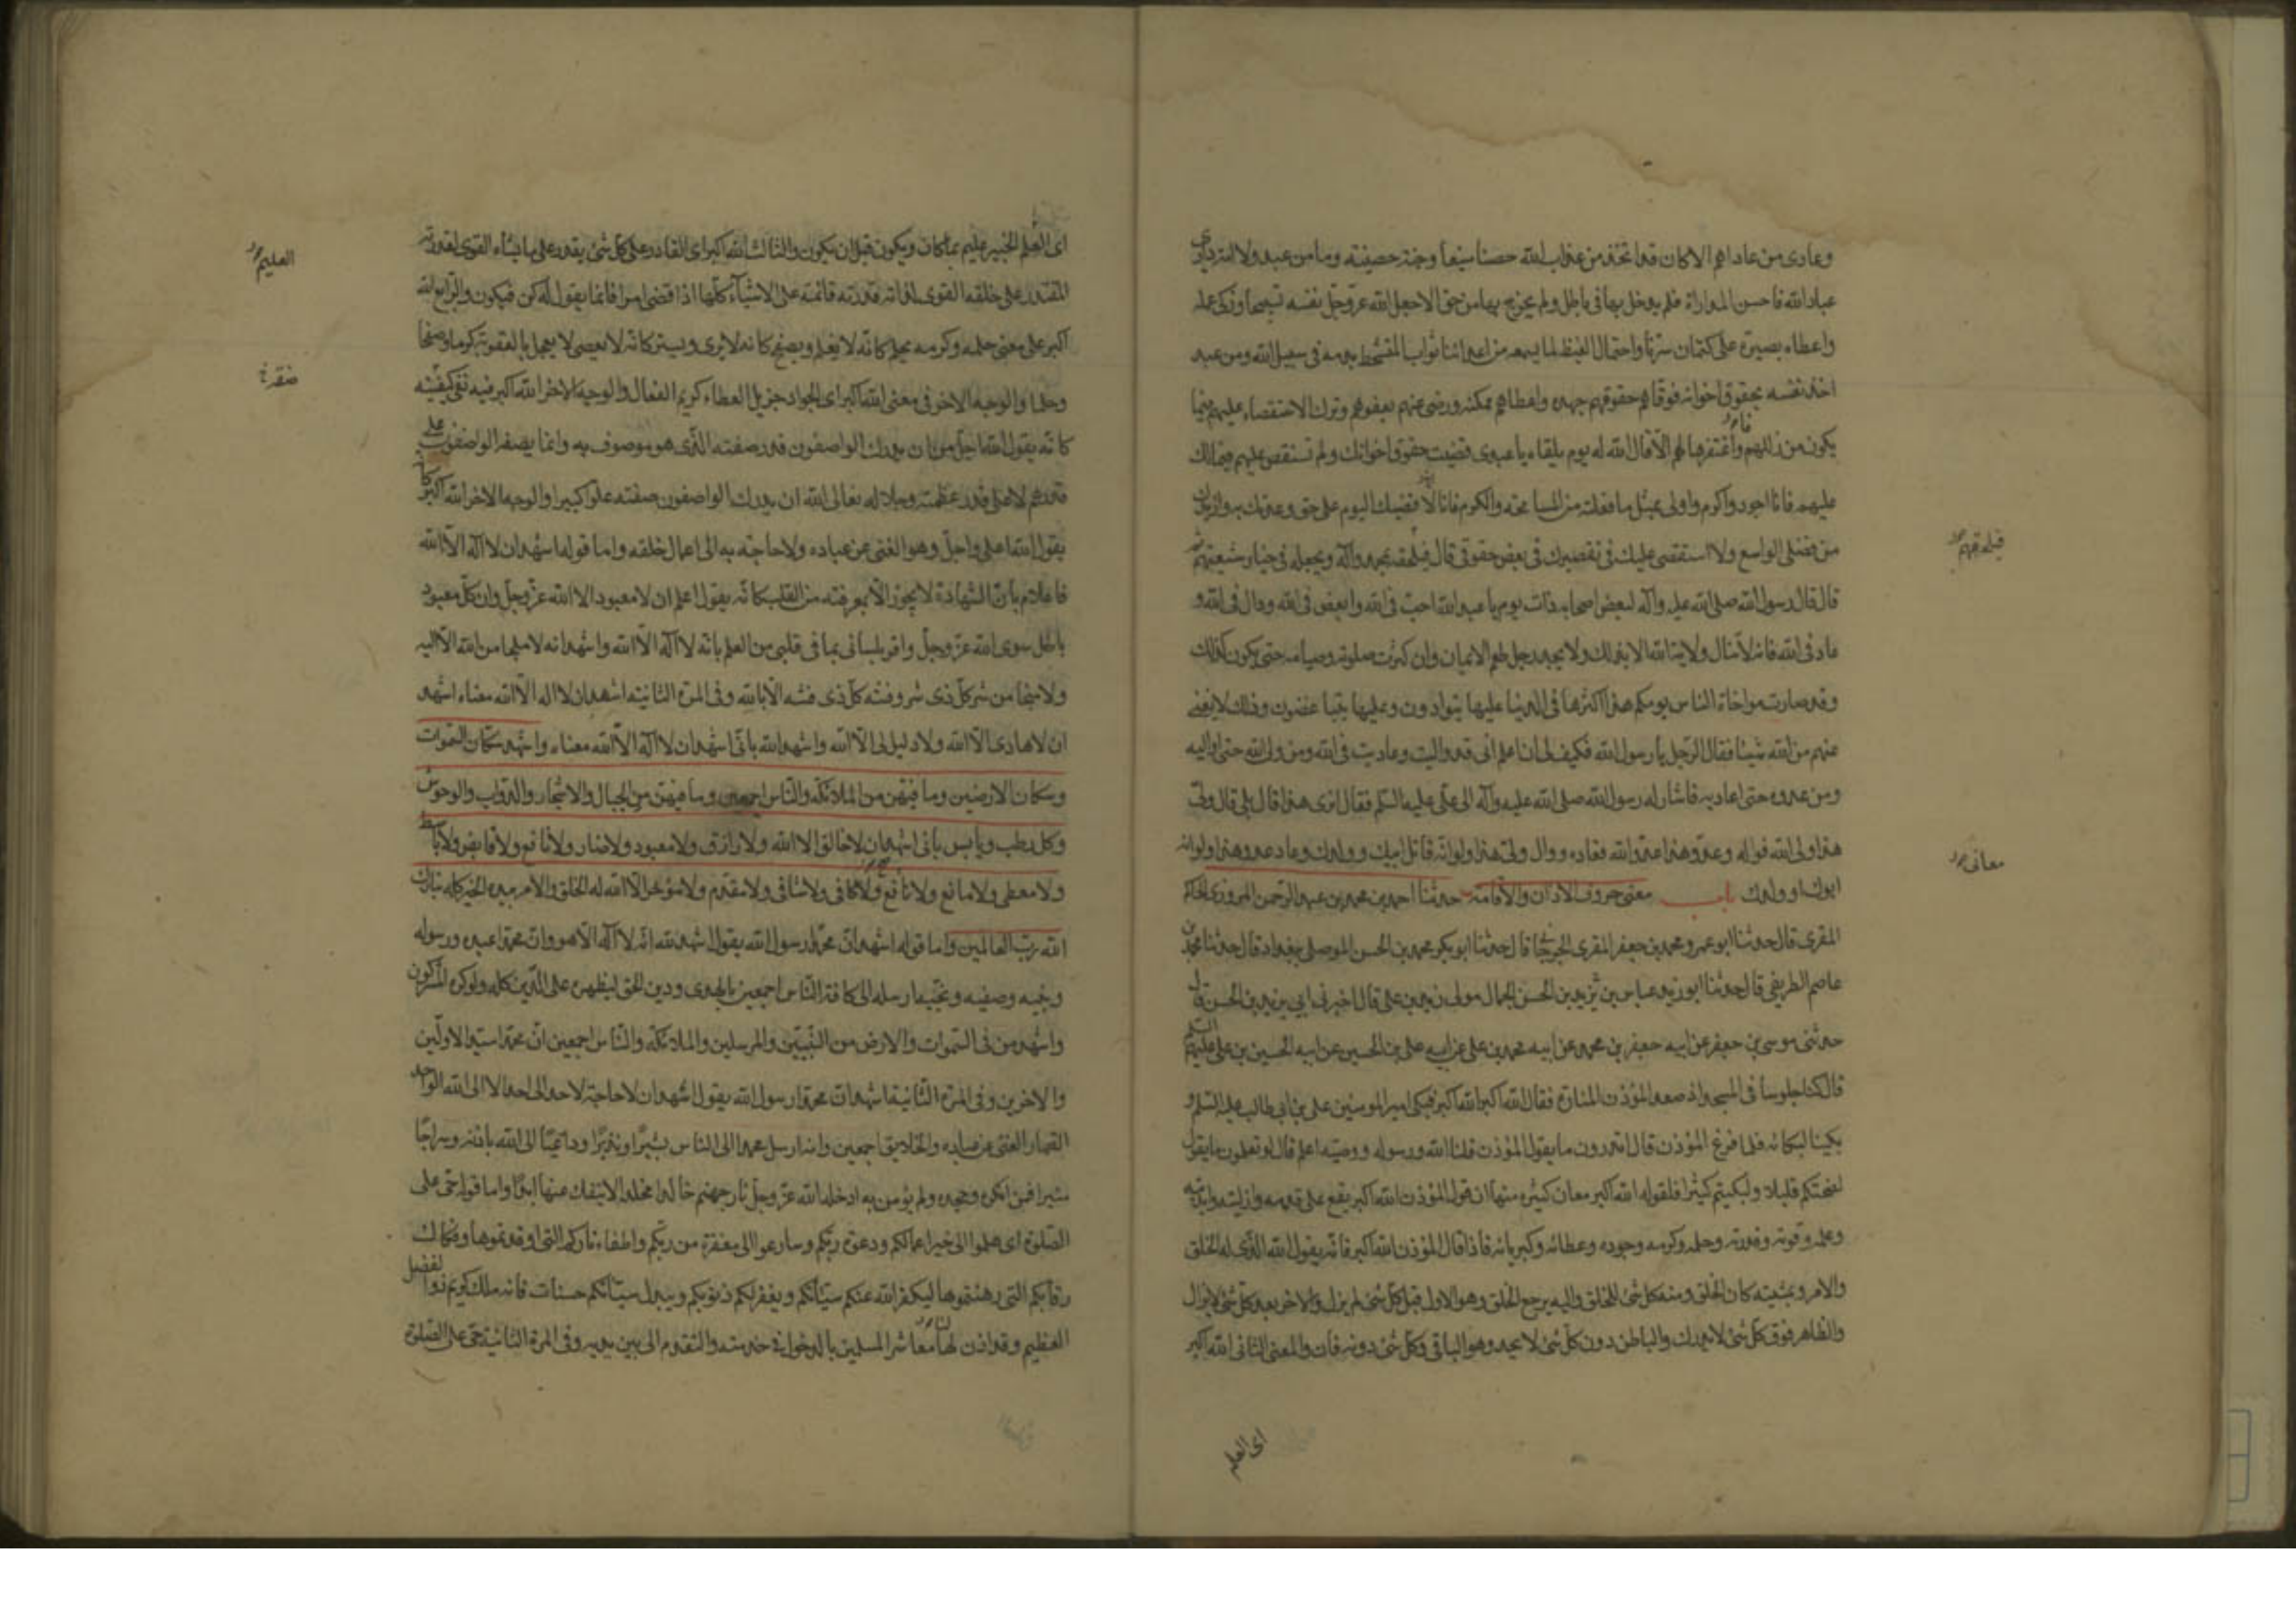 وعادى من عاداهم الا كان قد اتخذ من عذاب الله حصنا منيعا وجنة حصينة وما من عبد ولا امة دارى
عباد الله فاحسن المداراة فلم يدخل بها فى باطل ولم يخرج بها من حق الا جعل الله عز وجل نفسه تسبيحا وزكى عمله
واعطاه بصيرة على كتمان سرنا واحتمال الغيظ لما يسمعه من اعدائنا ثواب المتشحط بدمه فى سبيل الله وما من عبد
اخذ نفسه بحقوق اخوانه فوفاهم حقوقهم جهده واعطاهم ممكنه ورضى عنهم بعفوهم وترك الاستقصاء عليهم فيما
يكون من زللهم واغتفرها لهم الا قال الله له يوم يلقاه يا عبدى قضيت حقوق اخوانك ولم تستقص عليهم فيما لك
عليهم فانا اجود واكرم واولى بمثل ما فعلته من المسامحة والكرم فانا لاقضينك اليوم على حق وعدتك به وازيدك
من فضلى الواسع ولا استقصى عليك فى تقصيرك فى بعض حقوقى قال فيلحقه بمحمد وآله ويجعله فى خيار شيعتهم ثم
قال قال رسول الله صلى الله عليه وآله لبعض اصحابه ذات يوم يا عبد الله احب فى الله وابغض فى الله ووال فى الله و
عاد فى الله فانه لا تنال ولاية الله الا بذلك ولا يجد رجل طعم الايمان وان كثرت صلوته وصيامه حتى يكون كذلك
وقد صارت مواخاة الناس يومكم هذا اكثرها فى الدنيا عليها يتوادون وعليها يتباغضون وذلك لا يغنى
عنهم من الله شيئا فقال الرجل يا رسول الله فكيف لى ان اعلم انى قد واليت وعاديت فى الله ومن ولى الله حتى اواليه
ومن عدوه حتى اعاديه فاشار له رسول الله صلى الله عليه وآله الى على عليه السلم فقال اترى هذا قال بلى قال ولى
هذا ولى الله فواله وعدو هذا عدو الله فعاده ووال ولى هذا ولو انه قاتل ابيك وولدك وعاد عدو هذا ولو انه
ابوك او ولدك باب معنى حروف الاذان والاقامة حدثنا احمد بن محمد بن عبد الرحمن المروزى الحاكم
المقرى قال حدثنا ابو عمرو محمد بن جعفر المقرى الجرجانى قال حدثنا ابو بكر محمد بن الحسن الموصلى ببغداد قال حدثنا محمد بن
عاصم الطريفى قال حدثنا ابو زيد عباس بن يزيد بن الحسن الجمال مولى زيد بن على قال اخبرنى ابى يزيد بن الحسن قال
حدثنى موسى بن جعفر عن ابيه جعفر بن محمد عن ابيه محمد بن على عن ابيه على بن الحسين عن ابيه الحسين بن على عليهم السلم
قال كنا جلوسا فى المسجد اذ صعد المؤذن المنارة فقال الله اكبر الله اكبر فبكى امير المؤمنين على بن ابى طالب عليه السلم و
بكينا لبكائه فلما فرغ المؤذن قال اتدرون ما يقول المؤذن قلنا الله ورسوله ووصيه اعلم قال لو تعلمون ما يقول
لضحكتم قليلا ولبكيتم كثيرا فلقوله الله اكبر معان كثيرة منها ان قول المؤذن الله اكبر يقع على قدمه وازليته وابديته
وعلمه وقوته وقدرته وحلمه وكرمه وجوده وعطائه وكبريائه فاذا قال المؤذن الله اكبر فانه يقول الله الذى له الخلق
والامر وبمشيته كان الخلق ومنه كل شئ للخلق واليه يرجع الخلق وهو الاول قبل كل شئ لم يزل والاخر بعد كل شئ لا يزال
والظاهر فوق كل شئ لا يدرك والباطن دون كل شئ لا يحد وهو الباقى وكل شئ دونه فان والمعنى الثانى الله اكبر
معانى
اى العلم
اى العلم الخبير عليم بما كان ويكون قبل ان يكون والثالث الله اكبر اى القادر على كل شئ يقدر على ما يشاء القوى لقدرته
المقتدر على خلقه القوى لذاته قدرته قائمة على الاشياء كلها اذا قضى امرا فانما يقول له كن فيكون والرابع الله
اكبر على معنى حلمه وكرمه يحلم كانه لا يعلم ويصفح كانه لا يرى ويستر كانه لا يعصى لا يعجل بالعقوبة كرما وصفحا
وحلما والوجه الاخر فى معنى الله اكبر اى الجواد جزيل العطاء كريم الفعال والوجه الاخر الله اكبر فيه نفى كيفيته
كانه يقول الله اجل من ان يدرك الواصفون قدر صفته الذى هو موصوف به وانما يصفه الواصفون على
قدرهم لا على قدر عظمته وجلاله تعالى الله ان يدرك الواصفون صفته علوا كبيرا والوجه الاخر الله اكبر كانه
يقول الله اعلى واجل وهو الغنى عن عباده ولا حاجة به الى اعمال خلقه واما قوله اشهد ان لا اله الا الله
فاعلام بان الشهادة لا يجوز الا بمعرفته من القلب كانه يقول اعلم ان لا معبود الا الله عز وجل وان كل معبود
باطل سوى الله عز وجل واقر بلسانى بما فى قلبى من العلم بانه لا اله الا الله واشهد انه لا ملجا من الله الا اليه
ولا منجا من شر كل ذى شر وفتنة كل ذى فتنة الا بالله وفى المرة الثانية اشهد ان لا اله الا الله معناه اشهد
ان لا هادى الا الله ولا دليل لى الا الله واشهد الله بانى اشهد ان لا اله الا الله معناه واشهد سكان السموات
وسكان الارضين وما فيهن من الملائكة والناس اجمعين وما فيهن من الجبال والاشجار والدواب والوحوش
وكل رطب ويابس بانى اشهد ان لا خالق الا الله ولا رازق ولا معبود ولا ضار ولا نافع ولا قابض ولا باسط
ولا معطى ولا مانع ولا نافع ولا كافى ولا شافى ولا مقدم ولا مؤخر الا الله له الخلق والامر بيده الخير كله تبارك
الله رب العالمين واما قوله اشهد ان محمدا رسول الله يقول اشهد الله انه لا اله الا هو وان محمدا عبده ورسوله
ونبيه وصفيه ونجيه ارسله الى كافة الناس اجمعين بالهدى ودين الحق ليظهره على الدين كله ولو كره المشركون
واشهد من فى السموات والارض من النبيين والمرسلين والملائكة والناس اجمعين ان محمدا سيد الاولين
والاخرين وفى المرة الثانية اشهد ان محمدا رسول الله يقول اشهد ان لا حاجة لاحد الى احد الا الى الله الواحد
القهار الغنى عن عباده والخلايق اجمعين وانه ارسل محمدا الى الناس بشيرا ونذيرا وداعيا الى الله باذنه وسراجا
منيرا فمن انكره وجحده ولم يؤمن به ادخله الله عز وجل نار جهنم خالدا مخلدا لا ينفك عنها ابدا واما قوله حى على
الصلوة اى هلموا الى خير اعمالكم ودعوة ربكم وسارعوا الى مغفرة من ربكم واطفاء ناركم التى اوقدتموها وفكاك
رقابكم التى رهنتموها ليكفر الله عنكم سيئاتكم ويغفر لكم ذنوبكم ويبدل سيئاتكم حسنات فانه ملك كريم ذو الفضل
العظيم وقد اذن لنا معاشر المسلمين بالدخول فى خدمته والتقدم الى بين يديه وفى المرة الثانية حى على الصلوة
العليم